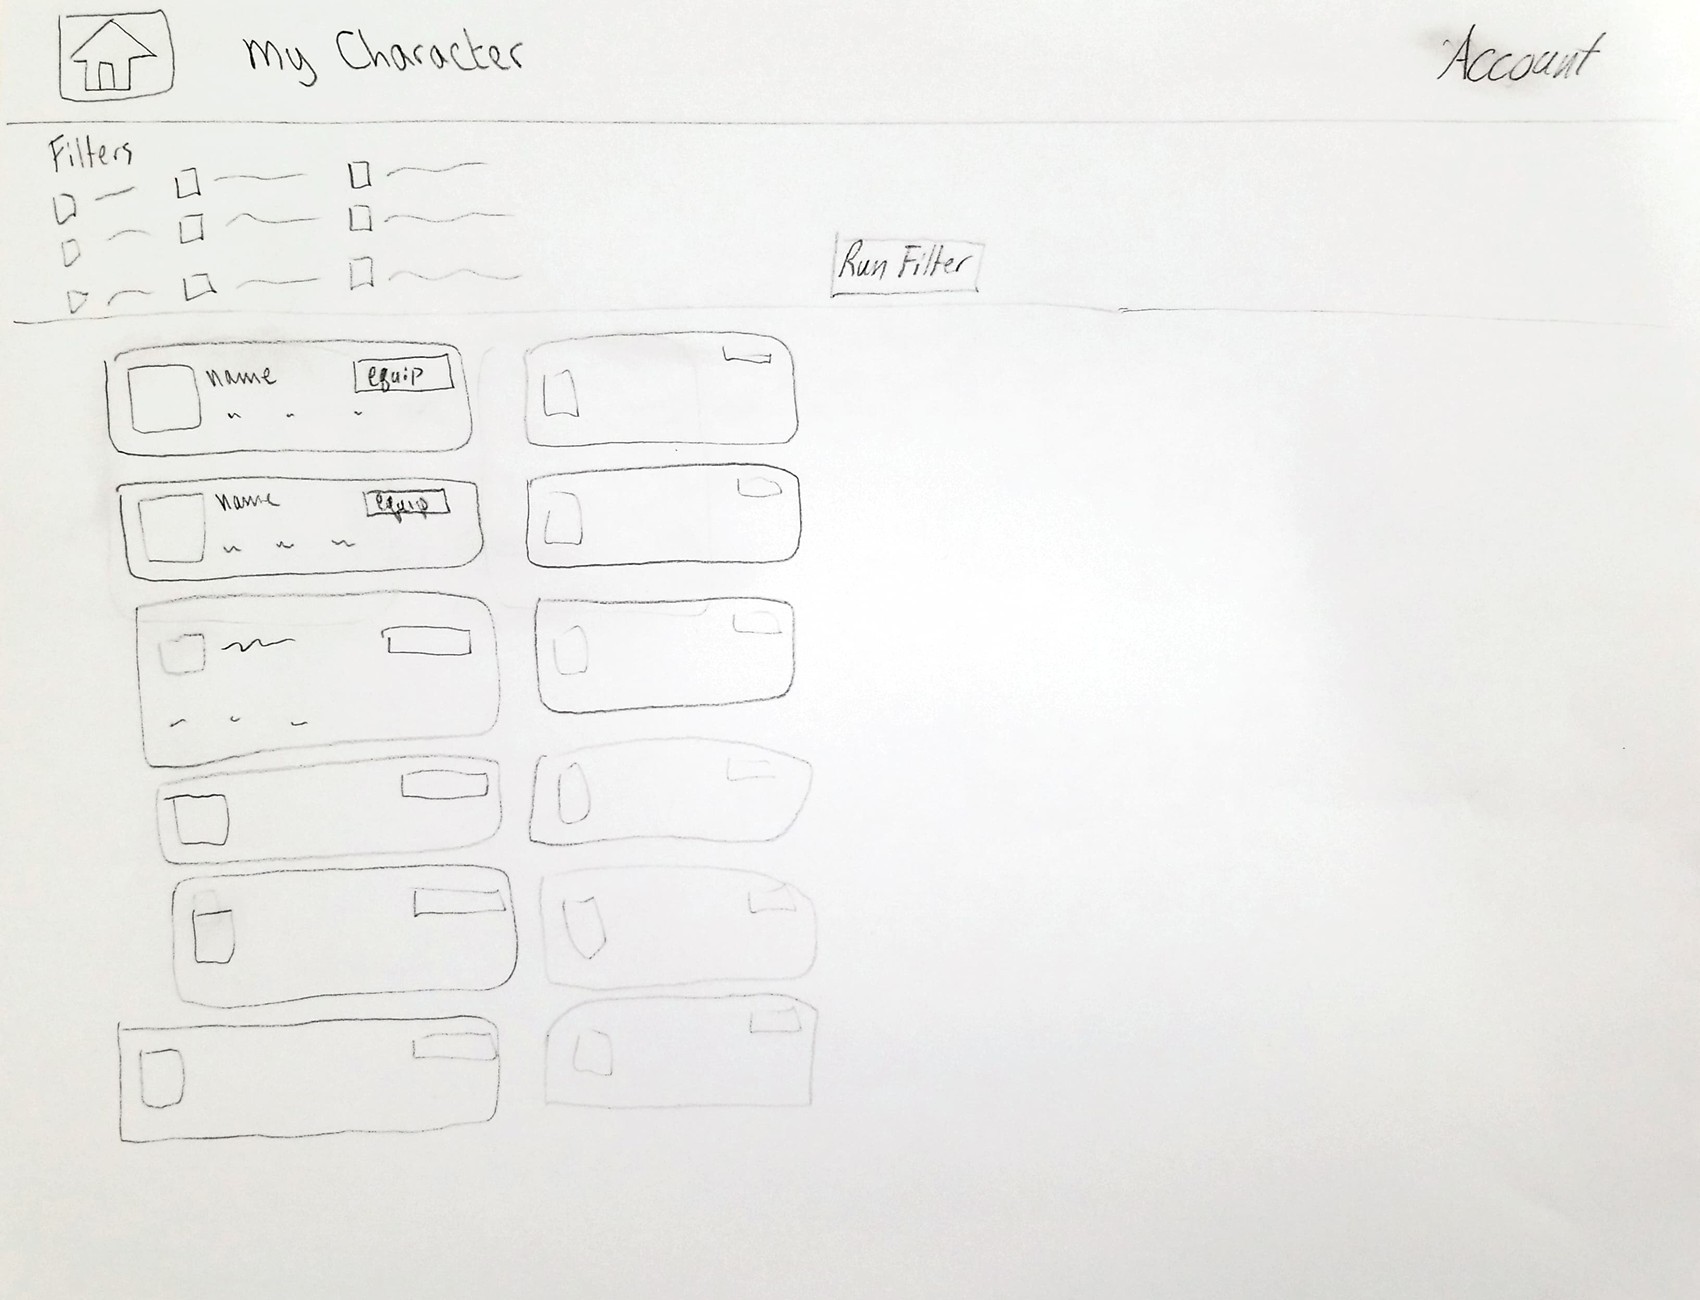 My Character
Account
Filters
Run Filter
name
equip
name
equip